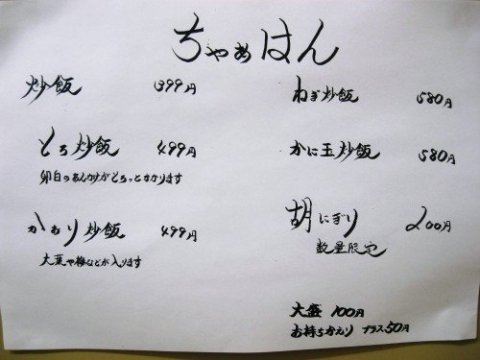 ちゃぁはん
炒飯 399円
とろ炒飯 499円
卵白のあんかけがとろっとかかります
かおり炒飯 499円
大葉や梅などが入ります
ねぎ炒飯 580円
かに玉炒飯 580円
胡にぎり 200円
数量限定
大盛 100円
お持ちかえり プラス50円